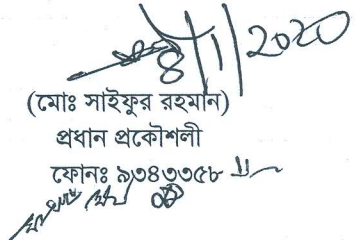 ৪/১/২০২০
(মোঃ সাইফুর রহমান)
প্রধান প্রকৌশলী
ফোনঃ ৯৩৪৩৩৫৮